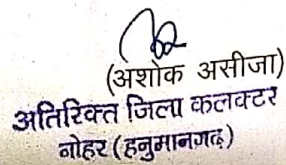 (अशोक असीजा)
अतिरिक्त जिला कलक्टर
नोहर (हनुमानगढ़)